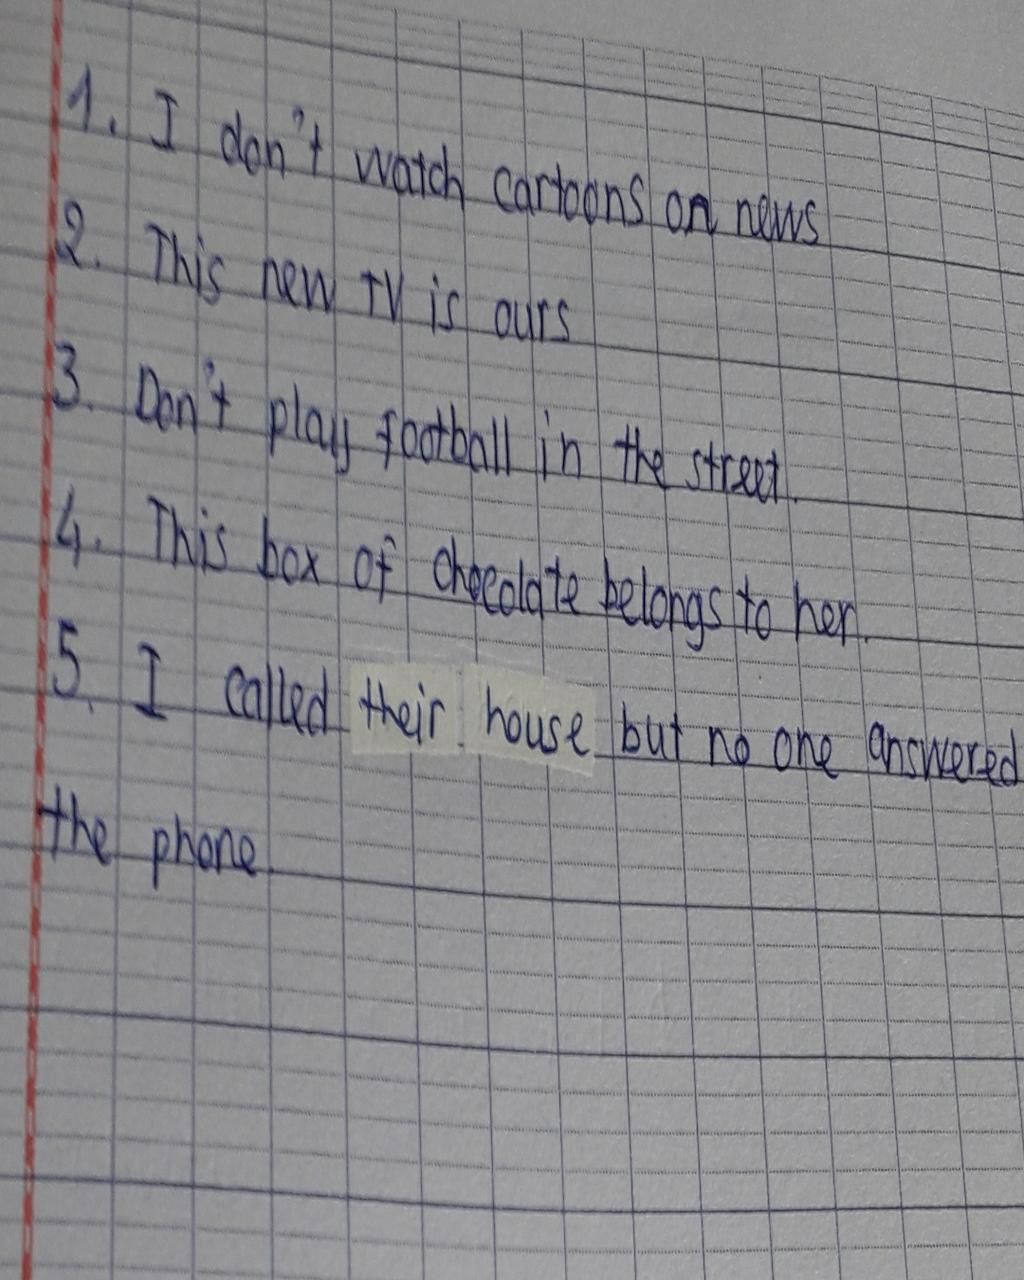 1. I don't watch cartoons on news
2. This new TV is ours
3. Don't play football in the street.
4. This box of chocolate belongs to her.
5. I called their house but no one answered
the phone